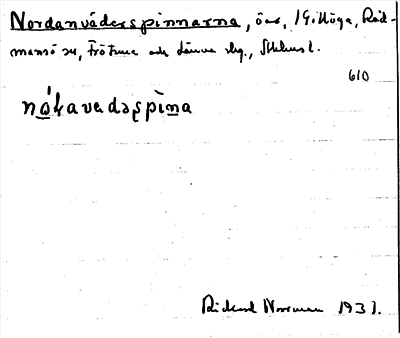 Nordanväderspinnarna, öar, i Gillöga, Råd-
mansö sn, Frötuna och Länna skg, Sthlms l.
610
nó̲ḷavadəʂpìn̲a
Rickard Norrman 1931.